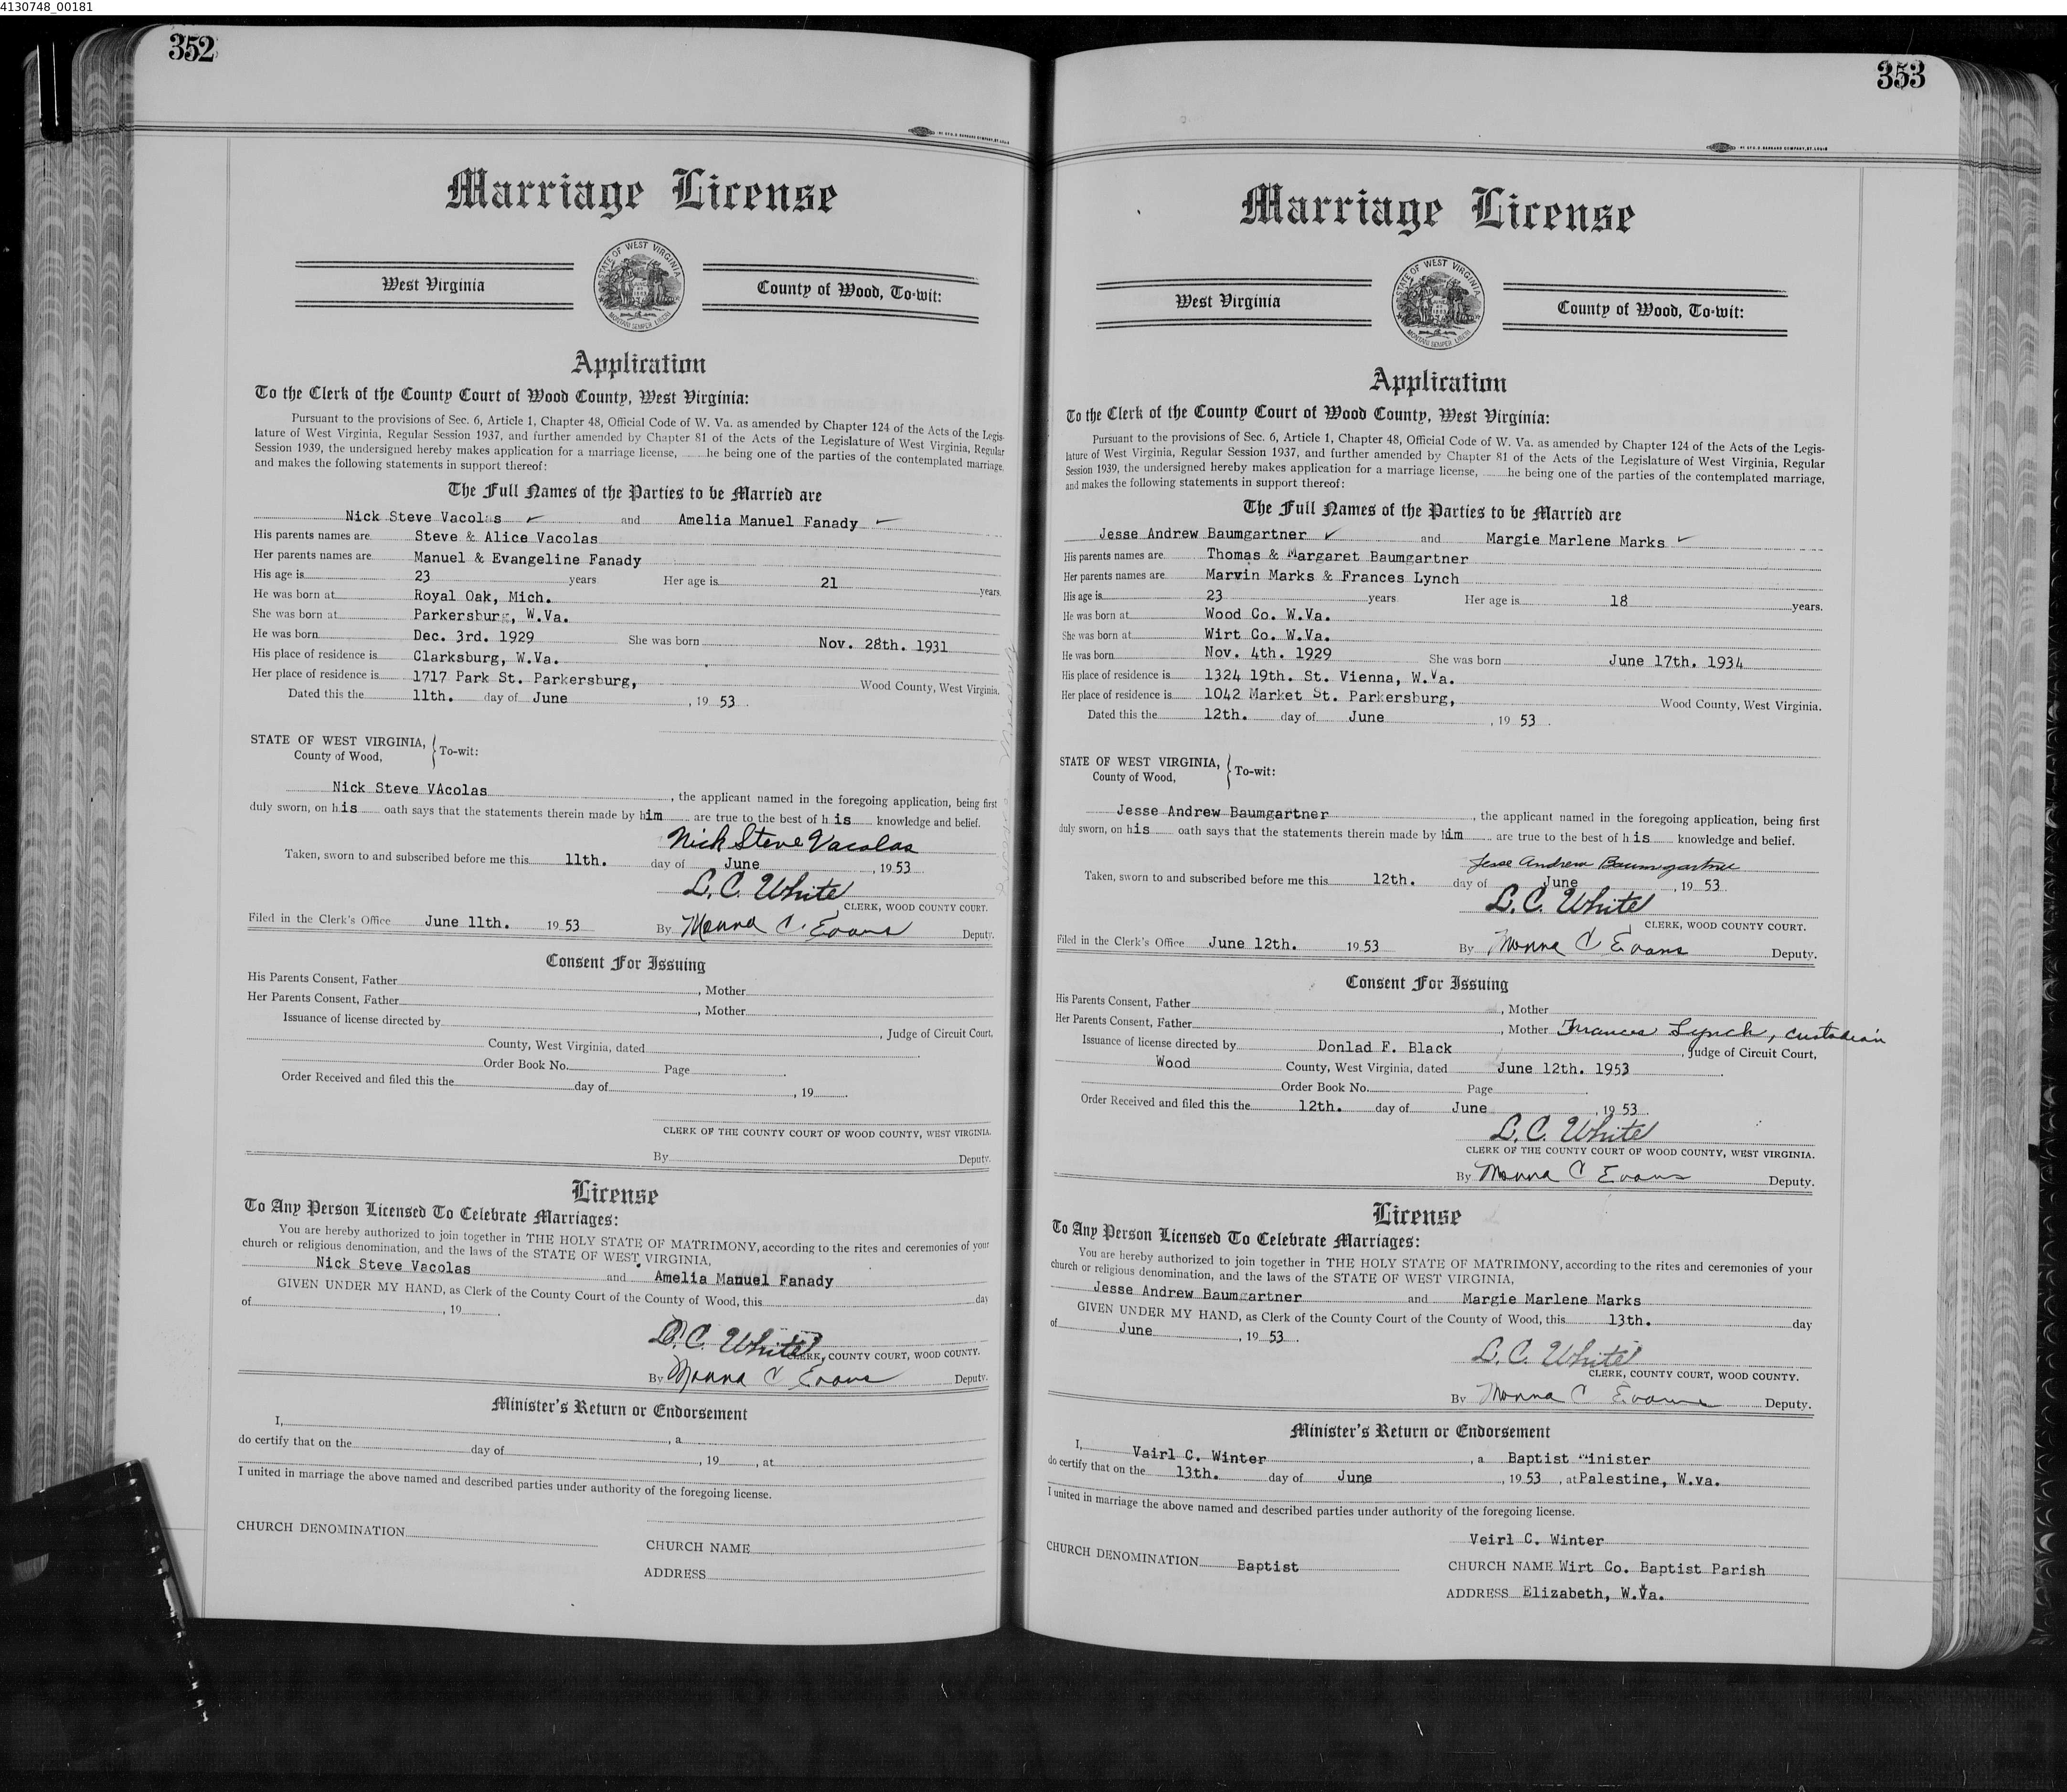 4130748_00181
352
Marriage License
West Virginia
STATE OF WEST VIRGINIA
MONTANI SEMPER LIBERI
County of Wood, To-wit:
Application
To the Clerk of the County Court of Wood County, West Virginia:
Pursuant to the provisions of Sec. 6, Article 1, Chapter 48, Official Code of W. Va. as amended by Chapter 124 of the Acts of the Legis-
lature of West Virginia, Regular Session 1937, and further amended by Chapter 81 of the Acts of the Legislature of West Virginia, Regular
Session 1939, the undersigned hereby makes application for a marriage license, he being one of the parties of the contemplated marriage,
and makes the following statements in support thereof:
The Full Names of the Parties to be Married are
Nick Steve Vacolas ✓ and Amelia Manuel Fanady ✓
His parents names are Steve & Alice Vacolas
Her parents names are Manuel & Evangeline Fanady
His age is 23 years Her age is 21 years.
He was born at Royal Oak, Mich.
She was born at Parkersburg, W.Va.
He was born Dec. 3rd. 1929 She was born Nov. 28th. 1931
His place of residence is Clarksburg, W.Va.
Her place of residence is 1717 Park St. Parkersburg, Wood County, West Virginia.
Dated this the 11th. day of June, 19 53.
STATE OF WEST VIRGINIA,
County of Wood, To-wit:
Nick Steve VAcolas, the applicant named in the foregoing application, being first
duly sworn, on his oath says that the statements therein made by him are true to the best of h is knowledge and belief.
Nick Steve Vacolas
Taken, sworn to and subscribed before me this 11th. day of June, 19 53
L. C. White
CLERK, WOOD COUNTY COURT.
Filed in the Clerk's Office June 11th. 19 53 By Monna C. Evans Deputy.
Consent For Issuing
His Parents Consent, Father, Mother
Her Parents Consent, Father, Mother
Issuance of license directed by, Judge of Circuit Court,
County, West Virginia, dated.
Order Book No. Page.
Order Received and filed this the day of, 19.
CLERK OF THE COUNTY COURT OF WOOD COUNTY, WEST VIRGINIA.
By Deputy.
License
To Any Person Licensed To Celebrate Marriages:
You are hereby authorized to join together in THE HOLY STATE OF MATRIMONY, according to the rites and ceremonies of your
church or religious denomination, and the laws of the STATE OF WEST VIRGINIA,
Nick Steve Vacolas and Amelia Manuel Fanady
GIVEN UNDER MY HAND, as Clerk of the County Court of the County of Wood, this day
of, 19.
L. C. White
CLERK, COUNTY COURT, WOOD COUNTY.
By Monna C Evans Deputy.
Minister's Return or Endorsement
I,, a
do certify that on the day of, 19, at
I united in marriage the above named and described parties under authority of the foregoing license.
CHURCH DENOMINATION
CHURCH NAME
ADDRESS
353
Marriage License
West Virginia
STATE OF WEST VIRGINIA
MONTANI SEMPER LIBERI
County of Wood, To-wit:
Application
To the Clerk of the County Court of Wood County, West Virginia:
Pursuant to the provisions of Sec. 6, Article 1, Chapter 48, Official Code of W. Va. as amended by Chapter 124 of the Acts of the Legis-
lature of West Virginia, Regular Session 1937, and further amended by Chapter 81 of the Acts of the Legislature of West Virginia, Regular
Session 1939, the undersigned hereby makes application for a marriage license, he being one of the parties of the contemplated marriage,
and makes the following statements in support thereof:
The Full Names of the Parties to be Married are
Jesse Andrew Baumgartner ✓ and Margie Marlene Marks ✓
His parents names are Thomas & Margaret Baumgartner
Her parents names are Marvin Marks & Frances Lynch
His age is 23 years Her age is 18 years.
He was born at Wood Co. W.Va.
She was born at Wirt Co. W.Va.
He was born Nov. 4th. 1929 She was born June 17th. 1934
His place of residence is 1324 19th. St. Vienna, W.Va.
Her place of residence is 1042 Market St. Parkersburg, Wood County, West Virginia.
Dated this the 12th. day of June, 19 53.
STATE OF WEST VIRGINIA,
County of Wood, To-wit:
Jesse Andrew Baumgartner, the applicant named in the foregoing application, being first
duly sworn, on his oath says that the statements therein made by him are true to the best of h is knowledge and belief.
Jesse Andrew Baumgartner
Taken, sworn to and subscribed before me this 12th. day of June, 19 53.
L. C. White
CLERK, WOOD COUNTY COURT.
Filed in the Clerk's Office June 12th. 19 53 By Monna C Evans Deputy.
Consent For Issuing
His Parents Consent, Father, Mother
Her Parents Consent, Father, Mother Frances Lynch, custodian
Issuance of license directed by Donlad F. Black, Judge of Circuit Court,
Wood County, West Virginia, dated June 12th. 1953.
Order Book No. Page.
Order Received and filed this the 12th. day of June, 19 53.
L. C. White
CLERK OF THE COUNTY COURT OF WOOD COUNTY, WEST VIRGINIA.
By Monna C Evans Deputy.
License
To Any Person Licensed To Celebrate Marriages:
You are hereby authorized to join together in THE HOLY STATE OF MATRIMONY, according to the rites and ceremonies of your
church or religious denomination, and the laws of the STATE OF WEST VIRGINIA,
Jesse Andrew Baumgartner and Margie Marlene Marks
GIVEN UNDER MY HAND, as Clerk of the County Court of the County of Wood, this 13th. day
of June, 19 53.
L. C. White
CLERK, COUNTY COURT, WOOD COUNTY.
By Monna C Evans Deputy.
Minister's Return or Endorsement
I, Vairl C. Winter, a Baptist Minister
do certify that on the 13th. day of June, 19 53, at Palestine, W.va.
I united in marriage the above named and described parties under authority of the foregoing license.
Veirl C. Winter
CHURCH DENOMINATION Baptist
CHURCH NAME Wirt Co. Baptist Parish
ADDRESS Elizabeth, W.Va.